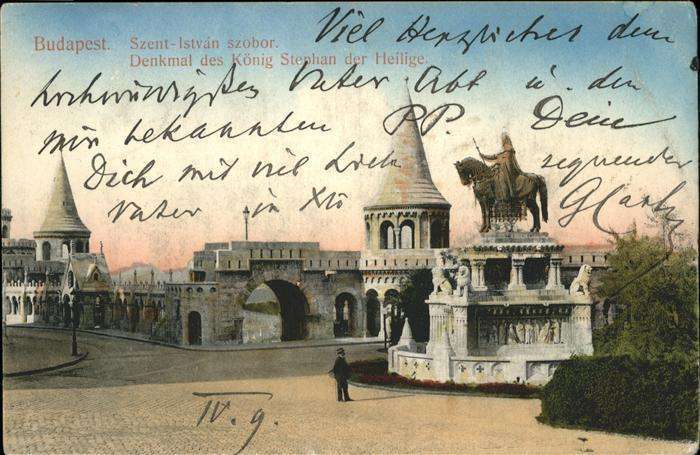 Budapest. Szent-István szobor.
Denkmal des König Stephan der Heilige.
Viel Herzliches dem
hochwürdigsten Vater Abt u. den
mir bekannten PP. Dein
Dich mit viel Lieb segnender
Vater in Xto
IV. 9.